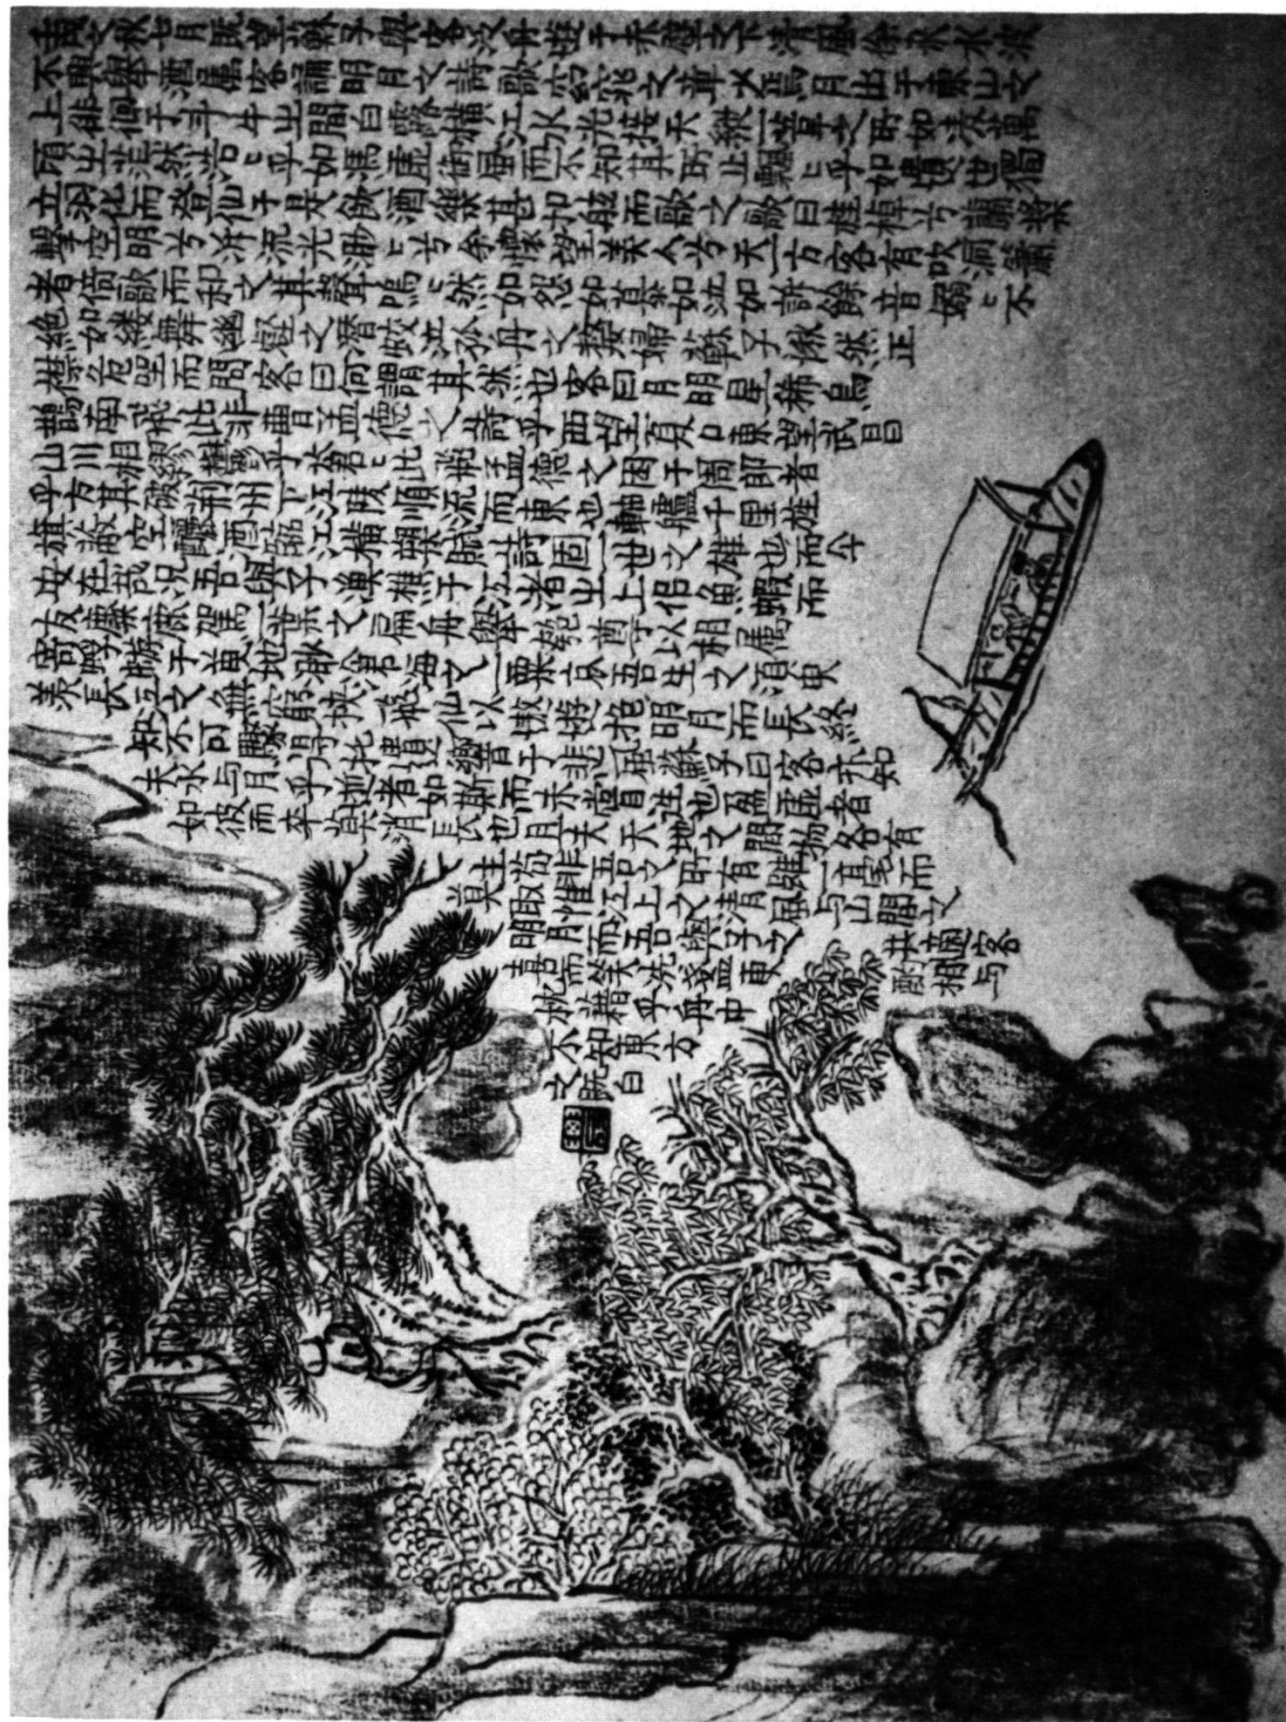 壬戌之秋七月既望蘇子與客泛舟遊于赤壁之下清風徐來水波
不興舉酒屬客誦明月之詩歌窈窕之章少焉月出于東山之
上徘徊于斗牛之間白露橫江水光接天縱一葦之所如凌萬
頃之茫然浩〻乎如馮虛御風而不知其所止飄〻乎如遺世獨
立羽化而登仙于是飲酒樂甚扣舷而歌之歌曰桂棹兮蘭槳
擊空明兮泝流光渺〻兮余懷望美人兮天一方客有吹洞簫
者倚歌而和之其聲嗚〻然如怨如慕如泣如訴餘音嫋〻不
絕如縷舞幽壑之潛蛟泣孤舟之嫠婦蘇子愀然正
襟危坐而問客曰何謂其然也客曰月明星稀烏
鵲南飛此非曹孟德之詩乎西望夏口東望武昌
山川相繆鬱乎蒼〻此非孟德之困于周郎者
乎方其破荊州下江陵順流而東也舳艫千里旌
旗蔽空釃酒臨江橫槊賦詩固一世之雄也而今
安在哉況吾與子漁樵于江渚之上侶魚蝦而
友麋鹿駕一葉之扁舟舉匏尊以相屬
寄蜉蝣于天地渺滄海之一粟哀吾生之須臾
羨長江之無窮挾飛仙以遨遊抱明月而長終
知不可驟乎得托遺響于悲風蘇子曰客亦知
夫水与月乎逝者如斯而未嘗往也盈虛者
如彼而卒莫消長也且夫天地之間物各有
主苟非吾之所有雖一毫而
莫取惟江上之清風与山間之
明月而吾與子之共適客
喜而笑洗盞更酌相与
枕藉乎舟中
不知東方
之既白